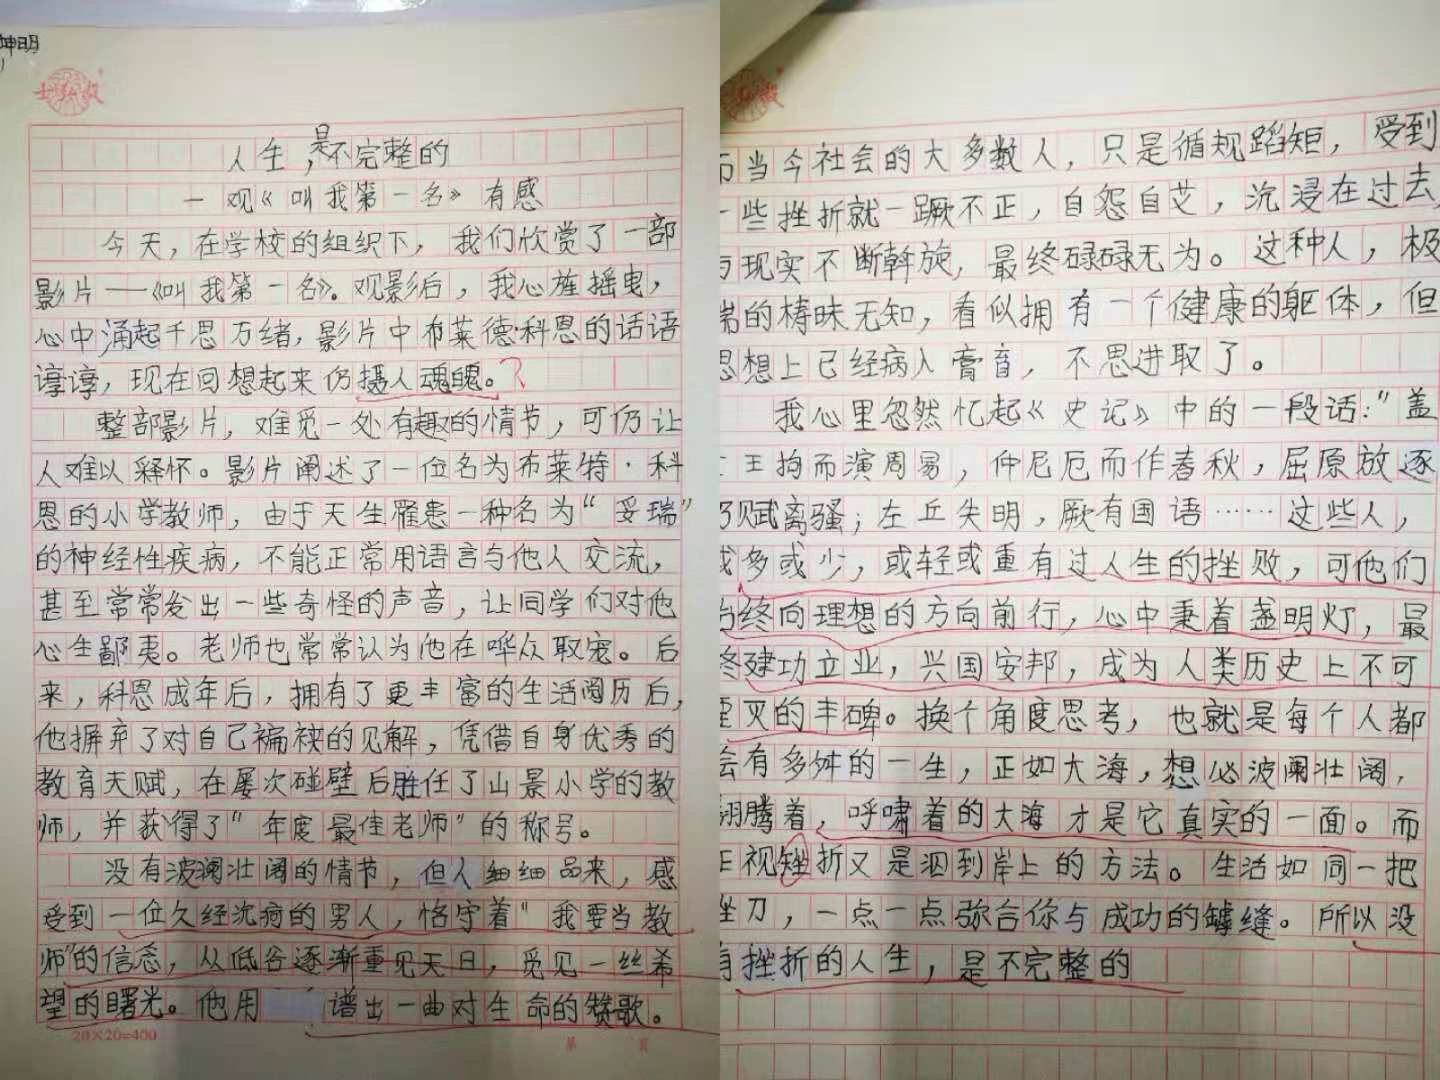 坤明
人生，是不完整的
—观《叫我第一名》有感
今天，在学校的组织下，我们欣赏了一部
影片——《叫我第一名》。观影后，我心旌摇曳，
心中涌起千思万绪，影片中布莱德·科恩的话语
谆谆，现在回想起来仍摄人魂魄。
整部影片，难觅一处有趣的情节，可仍让
人难以释怀。影片阐述了一位名为布莱特·科
恩的小学教师，由于天生罹患一种名为“妥瑞”
的神经性疾病，不能正常用语言与他人交流，
甚至常常发出一些奇怪的声音，让同学们对他
心生鄙夷。老师也常常认为他在哗众取宠。后
来，科恩成年后，拥有了更丰富的生活阅历后，
他摒弃了对自己褊狭的见解，凭借自身优秀的
教育天赋，在屡次碰壁后胜任了山景小学的教
师，并获得了“年度最佳老师”的称号。
没有波澜壮阔的情节，但人细细品来，感
受到一位久经沉疴的男人，恪守着“我要当教
师”的信念，从低谷逐渐重见天日，觅见一丝希
望的曙光。他用谱出一曲对生命的赞歌。
20×20=400
第 页
而当今社会的大多数人，只是循规蹈矩，受到
一些挫折就一蹶不正，自怨自艾，沉浸在过去，
与现实不断斡旋，最终碌碌无为。这种人，极
端的梼昧无知，看似拥有一个健康的躯体，但
思想上已经病入膏盲，不思进取了。
我心里忽然忆起《史记》中的一段话：“盖
王拘而演周易，仲尼厄而作春秋，屈原放逐
乃赋离骚；左丘失明，厥有国语……这些人，
或多或少，或轻或重有过人生的挫败，可他们
始终向理想的方向前行，心中秉着盏明灯，最
终建功立业，兴国安邦，成为人类历史上不可
湮灭的丰碑。换个角度思考，也就是每个人都
会有多舛的一生，正如大海，想必波阑壮阔，
翻腾着，呼啸着的大海才是它真实的一面。而
正视矬折又是泅到岸上的方法。生活如同一把
挫刀，一点一点弥合你与成功的罅缝。所以没
有挫折的人生，是不完整的